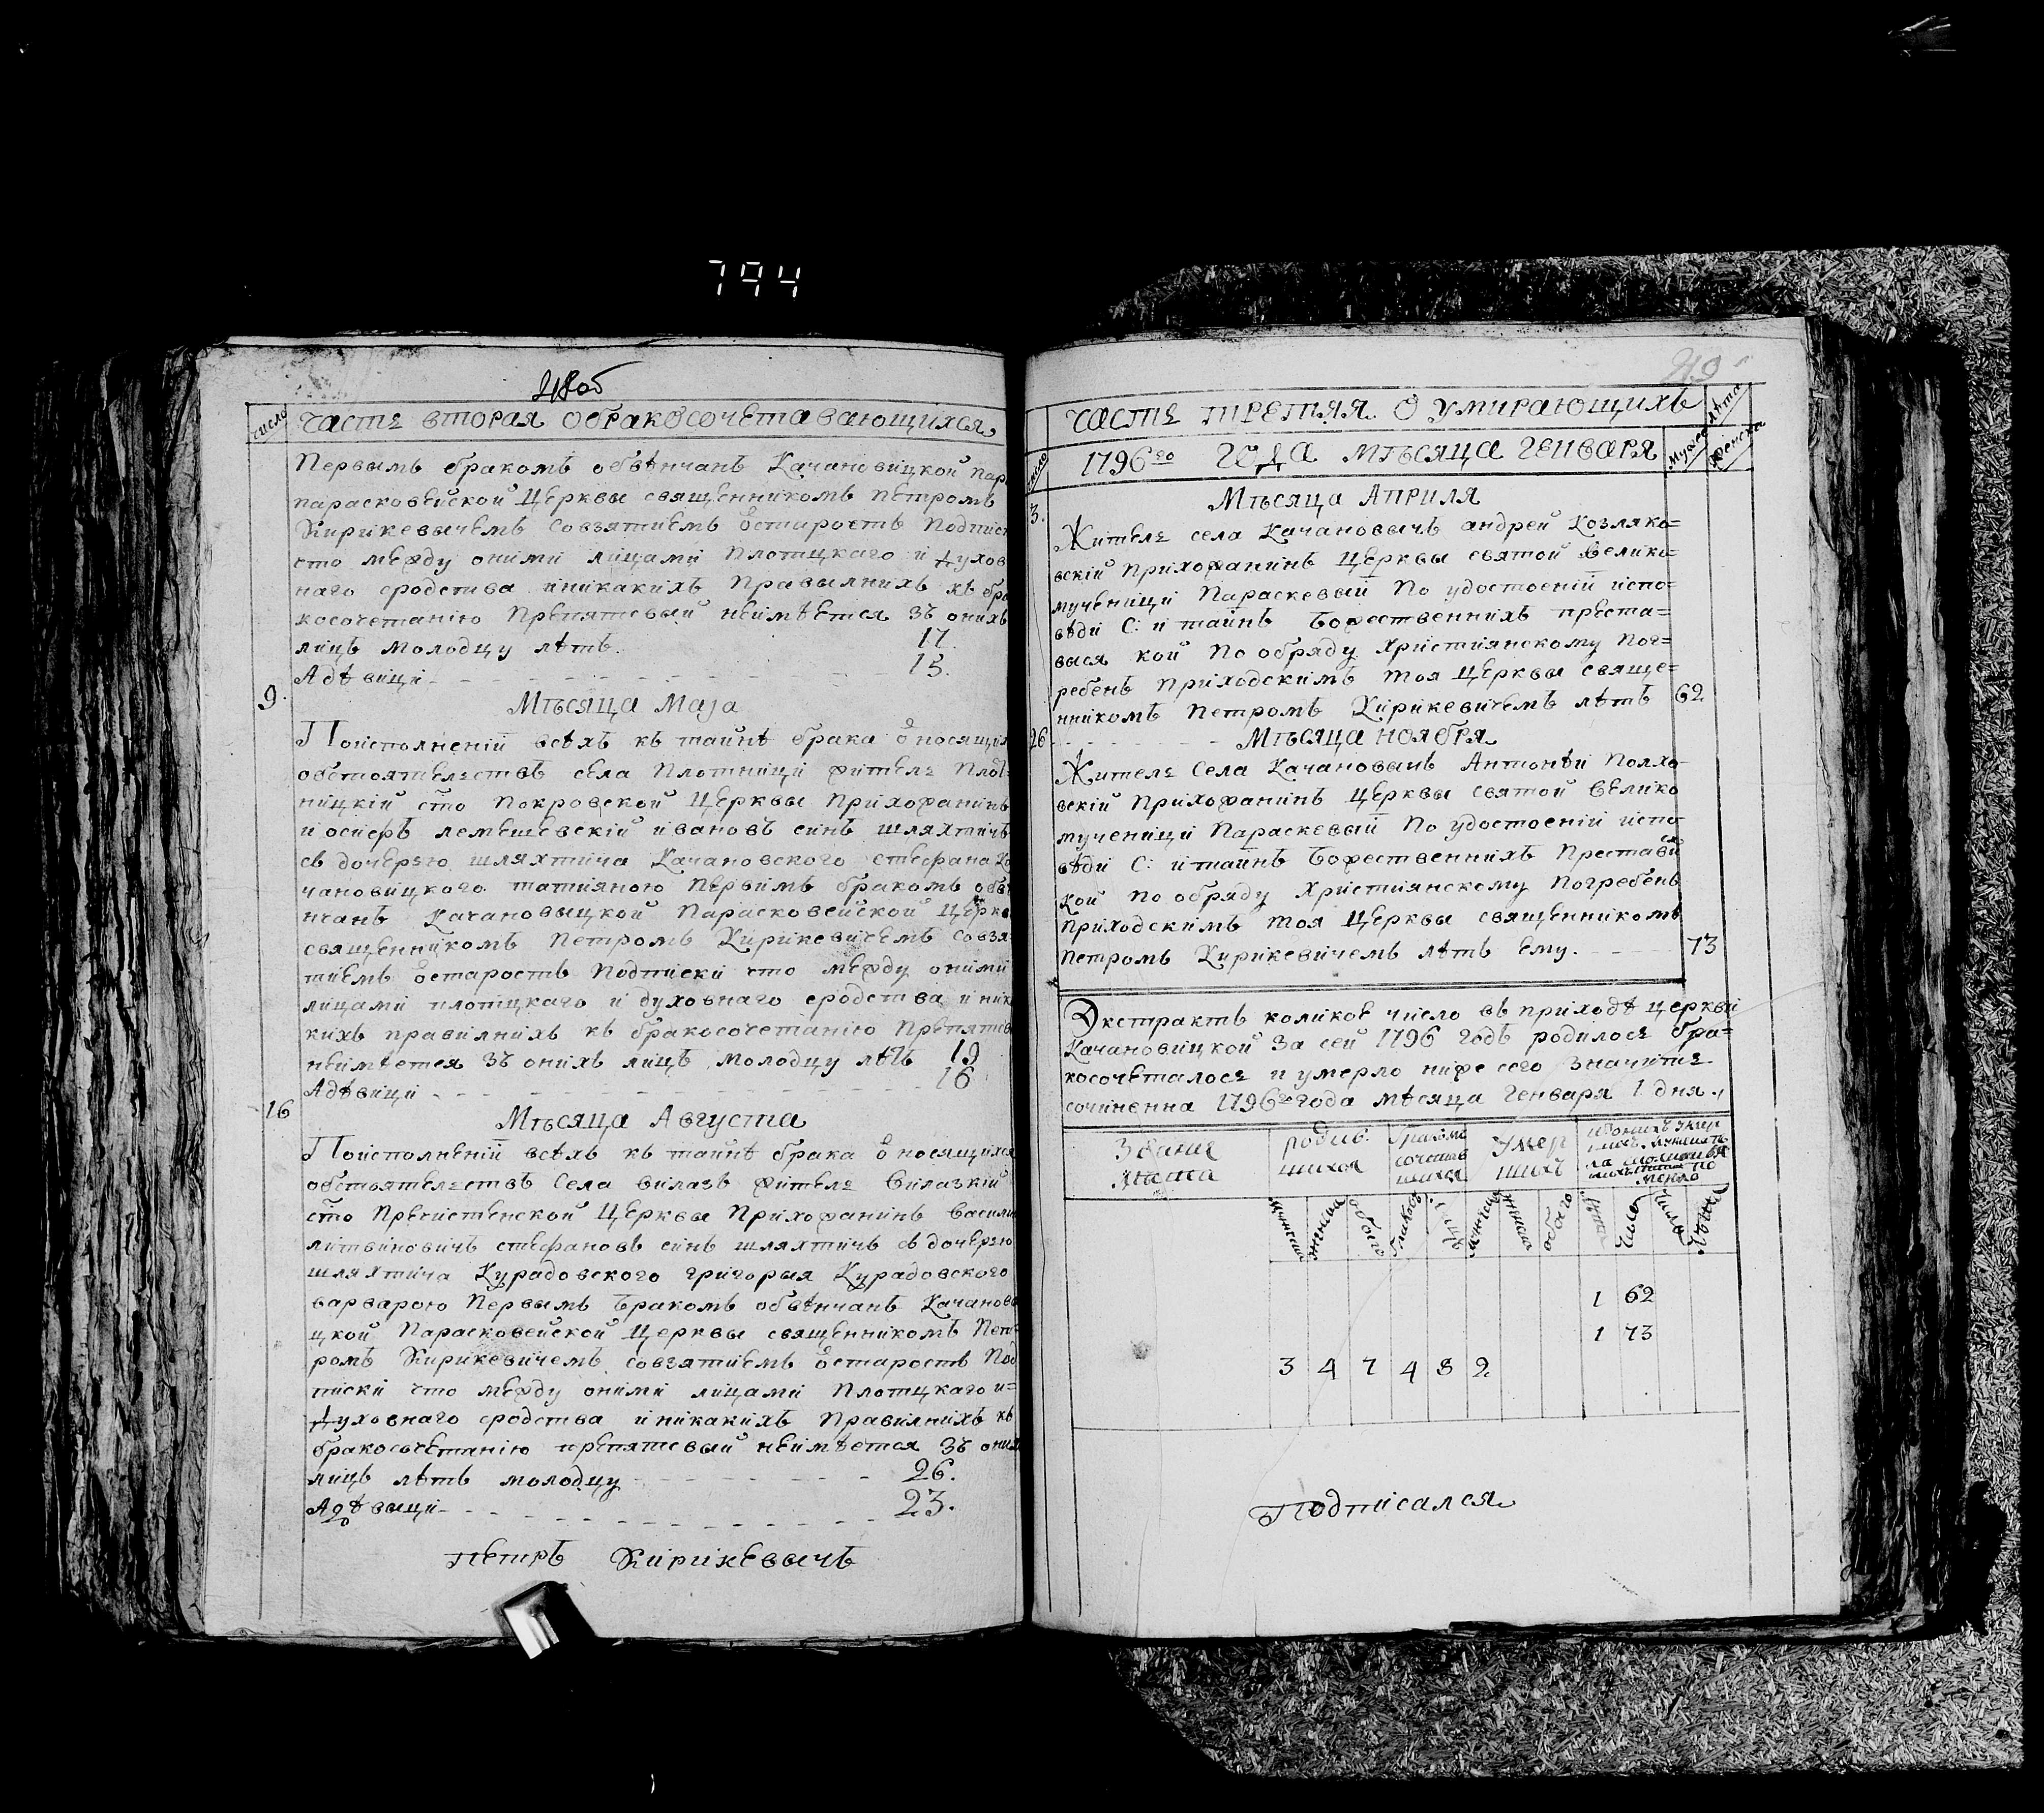 794
48об
число
часть вторая о бракосочетавающихся
Первымъ бракомъ обвѣнчанъ Качановицкой пар
парасковейской Церквы священникомъ петромъ
Кирикевычемъ совзятиемъ ѿстаростъ подпис
сто между оними лицами плотцкаго и духов
наго сродства иникакихъ Правылнихъ къ бра
косочетанію Препятсвый неимѣется зъ онихъ
лицъ молодцу лѣтъ. 17.
Адѣвици 15.
9.
Мѣсяца Маја
Поисполненіи всѣхъ къ тайнѣ брака ѿносящи
обстоятелствъ села Плотници жителъ Плот=
ницкій сто Покровской Церквы прихожанинъ
иосифъ лемешевскій ивановъ синъ шляхтичъ
съ дочерэю шляхтича Качановского стефана К
чановицкого татияною первимъ бракомъ обв
нчанъ Качановыцкой Парасковейской Церкв
священникомъ Петромъ Кирикевичемъ совзя=
тиемъ ѿстаростъ Подписки что между оними
лицами плотцкаго и духовнаго сродства и ник
кихъ правилнихъ къ бракосочетанію Препятсв
неимѣется зъ онихъ лицъ молодцу лѣтъ 19
Адѣвици 16
16
Мѣсяца Августа
Поисполненій всѣхъ къ тайнѣ брака ѿносящихся
обстоятелствъ Села вилазъ жителъ Вилазкій
сто Пречистенской Церквы Прихожанинъ васили
литвиновичъ стефановъ синъ шляхтичъ съ дочерэю
шляхтича Курадовского григорыя Курадовского
варварою Первымъ Бракомъ обвѣнчанъ Качановы
цкой Парасковейской Церквы священникомъ Пет=
ромъ Кирикевичемъ совзятиемъ ѿстаростъ Под
писки что между оними лицами Плотцкаго и=
духовнаго сродства иникакихъ Правилнихъ къ
бракосочетанію препятсвый неимѣется зъ они
лицъ лѣтъ молодцу 26.
Адѣвыци 23.
Петръ Кирикевычъ
49
число
часть третяя о умирающихъ
лѣта
1796го года мѣсяца генваря
Мужеска
женска
3.
Мѣсяца Априля
Жителъ села Качановычъ андрей Козляко=
вскій Прихожанинъ Церквы святой Велико=
мученици Параскевый По удостоеній испо=
вѣди С: и тайнъ Божественнихъ преста=
выся кой по обряду Християнскому пог=
ребенъ приходскимъ тоя Церквы свяще=
нникомъ Петромъ Кирикевичемъ лѣтъ 62
26
Мѣсяца ноября
Жителъ Села Качановычъ Антонѣй Полхо=
вскій Прихожанинъ Церквы святой Велико
мученици Параскевый По удостоеній испо
вѣди С: и тайнъ Божественнихъ Престави
кой по обряду Християнскому Погребенъ
Приходскимъ тоя Церквы священникомъ
Петромъ Кирикевичемъ лѣтъ ему. 73
Экстрактъ коликое число въ приходѣ церкви
Качановицкой за сей 1796 годъ родилося бра=
косочеталося и умерло ниже сего значится
сочиненна 1796го года мѣсяца Генваря 1 дня
Звание
мѣста
родив
шихся
бракомъ
сочетав
шихся
Умер
шихъ
мужеска
женска
обоего
браковъ
мужеска
женска
обоего
число
1 62
1 73
3 4 7 4 8 2
Подписался